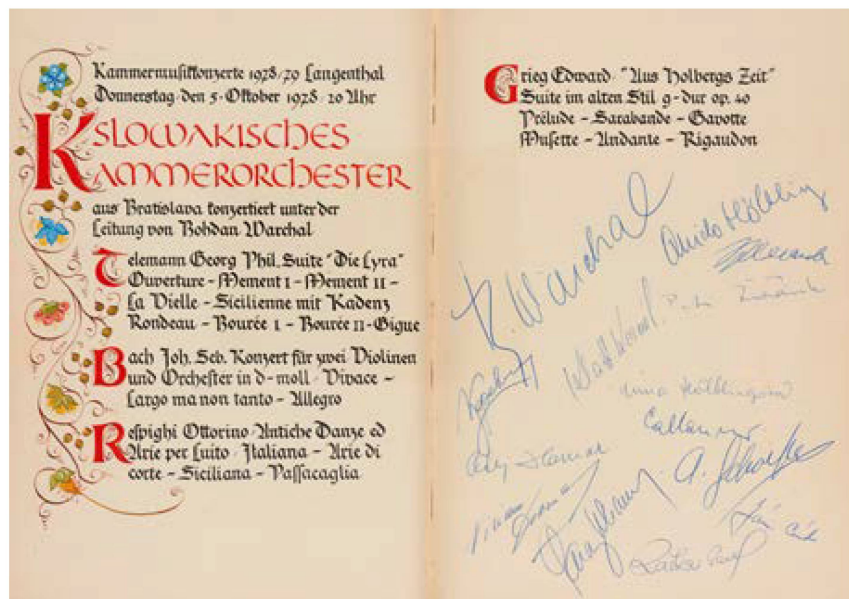 Kammermusikkonzerte 1978/79 Langenthal
Donnerstag·den 5·Oktober 1978·20 Uhr
SLOWAKISCHES
KAMMERORCHESTER
aus Bratislava konzertiert unter der
Leitung von Bohdan Warchal
Telemann Georg Phil. Suite "Die Lyra"
Ouverture - Menuet I - Menuet II -
La Vielle - Sicilienne mit Kadenz
Rondeau - Bourée I - Bourée II - Gigue
Bach Joh. Seb. Konzert für zwei Violinen
und Orchester in d-moll · Vivace -
Largo ma non tanto - Allegro
Respighi Ottorino · Antiche Danze ed
Arie per Luito · Italiana - Arie di
corte - Siciliana - Passacaglia
Grieg Edward · "Aus Holbergs Zeit"
Suite im alten Stil g-dur op. 40
Prélude - Sarabande - Gavotte
Musette - Andante - Rigaudon
B. Warchal
Quido Hölbling